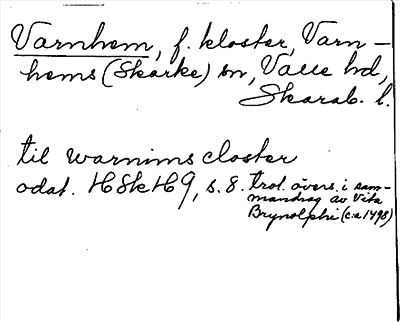 Varnhem, f. kloster, Varn-
hems (Skarke) sn, Valle hd,
Skarab. l.
til warnims closter
odat. HSkH9, s. 8. trol. övers. i sam-
mandrag av Vita
Brynolphi (c:a 1498)